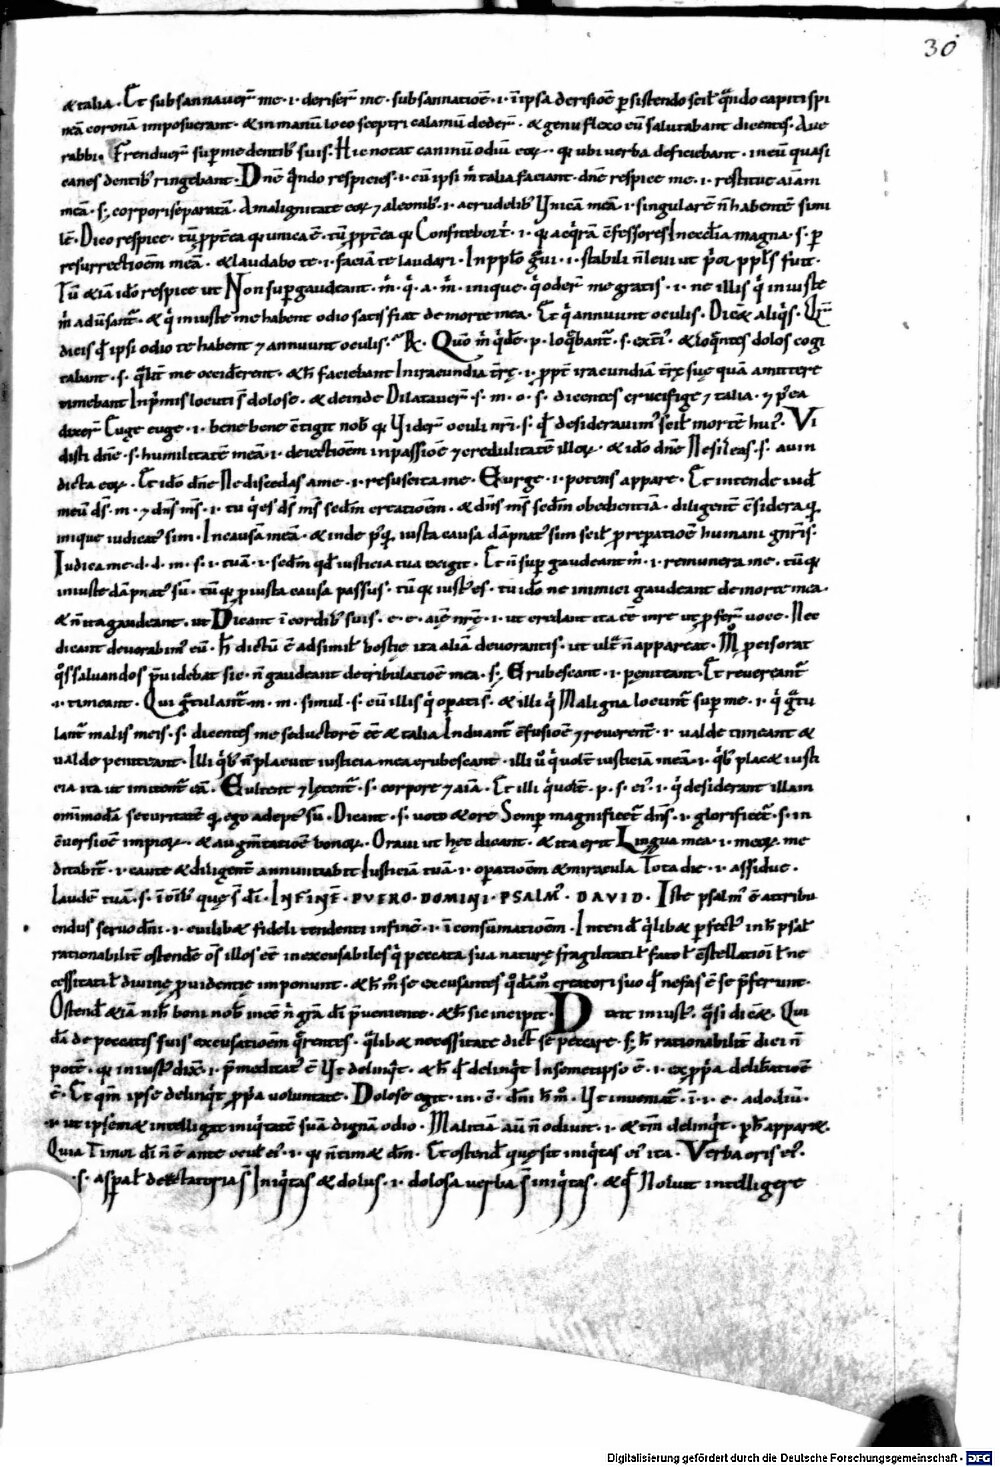 30
&talia · Et subsannaver̄ me · i · deriser̄ me · subsannatioē · i · in ipsa derisioē ꝑsistendo scil' qn̄do capiti spi
neā coronā imposuerant · & in manū loco sceptri calamū deder̄ · & genu flexo eū salutabant dicentes · Ave
rabbi · Frenduer̄ suꝑ me dentib; suis · Hic notat caninū odiū eoꝝ · qꝛ ubi verba deficiebant · in eū quasi
canes dentib; ringebant · Dn̄e qn̄do respicies · i · cū ipsi m̄ talia faciant · dn̄e respice me · i · restitue aīam
meā · s · corpori separatā · A malignitate eoꝝ ⁊ a leonib; · i · a crudelib; Vnicā meā · i · singularē n̄ habentē simi
lē · Dico respice · tū ꝓpt̄ea qꝛ unica ē · tū ꝓpt̄ea qꝛ Confitebor t̄ · i · qꝛ acq̄rā c̄fessores In eccl̄ia magna · s · ꝑ
resurrectioēm meā · & laudabo te · i · faciā te laudari · In pplo gͣvi · i · stabili n̄ levi ut
Tū & iā ido respice ut Non suꝑgaudeant · m̄ · q̇ · a · m̄ · inique · q̇ oder̄ me gratis · i · ne illis q̇ iniuste
m̄ adūsant̄ · & q̇ iniuste me habent odio satis fiat de morte mea · Et q̇ annuunt oculis · Dic& aliq̇s ·
dicis qd̄ ipsi odio te habent ⁊ annuunt oculis · Quō m̄ qd̄e · p · loq̄bant̄ · s · & loq̄ntes dolos cogi
tabant · s · qͣlit̄ me occiderent · & h̄ faciebant In iracundia t̄rę · i · ꝓpt̄ iracundiā t̄rę suę quā amittere
timebant In p̄mis locuti s̄ dolose · & deinde Dilataver̄ · s · m · o · s · dicentes crucifige ⁊ talia · ⁊ p̄ ea
dixer̄ Euge euge · i · bene bene c̄tigit nob̄ qꝛ Vider̄ oculi nr̄i · s · qd̄ desideravim; scil' mortē hui; · Vi
disti dn̄e · s · humilitatē meā · i · deiectioēm in passioē ⁊ credulitatē illoꝝ · & ido dn̄e Ne sileas · s · a vin
dicta eoꝝ · Et ido dn̄e Ne discedas a me · i · resuscita me · Exurge · i · potens appare · Et intende iud̄
meū d̄s · m · ⁊ dn̄s m̄s · i · tu q̇ es d̄s m̄s sedm̄ creatioēm · & dn̄s m̄s sedm̄ obedientiā · diligent̄ c̄sidera qꝛ
inique iudicat; sim · In causā meā · & inde ꝑq̄ iusta causa dāpnat; sim scil' ꝓ reparatioē humani gn̄ris ·
Iudica me · d · d · m · s · i · tuā · i · sedm̄ qd̄ iusticia tua exigit · Et n̄ suꝑ gaudeant m̄ · i · remunera me · tū qꝛ
iniuste dāpnat; sū · tū qꝛ ꝓ iusta causa passus · tū qꝛ iust; es · tu ido ne inimici gaudeant de morte mea ·
& n̄ ita gaudeant · ut Dicant ī cordib; suis · e · e · aīę nr̄ę · i · ut credant ita eē in re ut ꝓfer̄ voce · Nec
dicant devorabim; eū · h̄ dictū ē ad simil' bestię ita aliā devorantis · ut ult̄ n̄ appareat ·
salvandos p̄videbat sic · n̄ gaudeant de tribulatioē mea · s · Erubescant · i · pęniteant · Et revereant̄
· i · timeant · Qui gͣtulant̄ · m · m · simul · s · cū illis q̇ opatis · & illi q̇ Maligna locunt̄ suꝑ me · i · q̇ gͣtu
lant̄ malis meis · s · dicentes me seductorē eē & talia Induant̄ c̄fusioē ⁊ reverent̄ · i · valde timeant &
valde peniteant · Illi q̇b; n̄ placuit iusticia mea erubescant · illi v̄ q̇ volēt iusticiam meā · i · q̇b; plac& iusti
cia ita ut imitent̄ eā · Exultent ⁊ lętent̄ · s · corpore ⁊ aīā · Et illi q̇ volēt · p · s · ei; · i · q̇ desiderant illam
om̄imodā securitatē qͣ ego adept; sū · Dicant · s · voto & ore Semꝑ magnificet̄ dn̄s · i · glorificet̄ · s · in
c̄versioē impioꝝ · & augm̄tatioē bonoꝝ · Oravi ut hęc dicant · & ita erit Lingua mea · i · meoꝝ · me
ditabit̄ · i · caute & diligent̄ annuntiabit Iusticiā tuā · i · opatioēm & miracula Tota die · i · assidue ·
Laudē tuā · s · quę s̄ d̄i · IN FINĒ · PVERO · DOMINI · PSALM; · DAVID · Iste psalm; ē attribu
endus servo dn̄i · i · cuilib& fideli tendenti in finē · i · ī consūmatioēm · Intend̄ q̄lib& ꝑfect; in h̄ psal̄
rationabilit̄ ostende os̄ illos eē inexcusabiles q̇ peccata sua naturę fragilitati l̄ fato l̄ c̄stellatioī l̄ ne
cessitati l̄ divinę ꝓvidentię imponunt · & h̄ m̊ se excusantes creatori suo qd̄ nefas ē se p̄ferunt ·
Ostend̄ & iā nih̄ boni nob̄ inēē n̄ gr̄a d̄i p̄veniente · & h̄ sic incipit · Dixit iniust; · qͣsi dic& · Qui
dā de peccatis suis excusatioēm q̄rentes · q̄lib& necessitate dict̄ se peccare · s; h̄ rationabilit̄ dici n̄
potē · qꝛ iniust; dix̄ · i · p̄meditat; ē Vt delinq̄t · & h̄ qd̄ delinq̄t In semetipso ē · i · ex ꝓp̄a delib̄atioē
ē · Et qm̄ ipse delinq̄t ꝓp̄a voluntate · Dolose egit · in · c̄ · dn̄i h̄ m̊ · Vt inveniat̄ · i · i · e · ad odiū ·
· i · ut ipsem& intelligat iniq̄tatē suā dignā odio · Malitiā aū n̄ odiunt · i · & tm̄ delinq̄t · ꝑ h̄ appar& ·
Quia Timor d̄i n̄ ē ante ocul̄ ei; · i · qꝛ n̄ tim& dm̄ · Et ostend̄ quę sit iniq̄tas ei; ita · Verba oris ei; ·
· s · aspal̄ detestatoria s̄ Iniq̄tas & dolus · i · dolosa verba s̄ iniq̄tas · & qd̄ Noluit intelligere
Digitalisierung gefördert durch die Deutsche Forschungsgemeinschaft - DFG